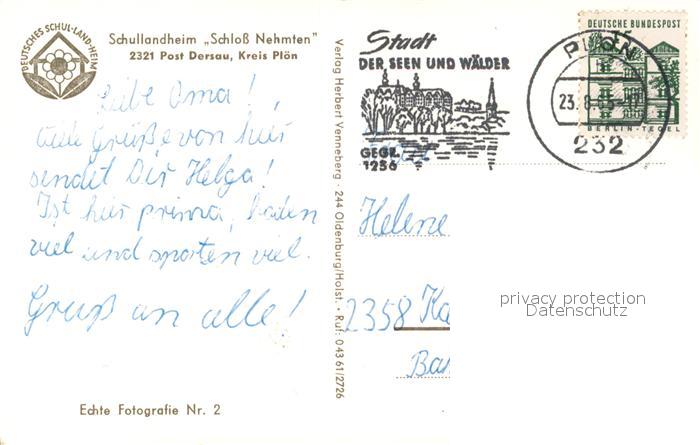 DEUTSCHES SCHUL-LAND-HEIM
Schullandheim „Schloß Nehmten"
2321 Post Dersau, Kreis Plön
Liebe Oma!
viele Grüße von hier
sendet Dir Helga!
Ist hier prima, baden
viel und sporten viel.
Gruß an alle!
Echte Fotografie Nr. 2
Verlag Herbert Venneberg · 244 Oldenburg/Holst. · Ruf: 04361/2726
Stadt
DER SEEN UND WÄLDER
GEGR.
1236
DEUTSCHE BUNDESPOST
15
BERLIN-TEGEL
PLÖN
23.-8.65-17
232
Helene
2358 Ka
Ba
privacy protection
Datenschutz